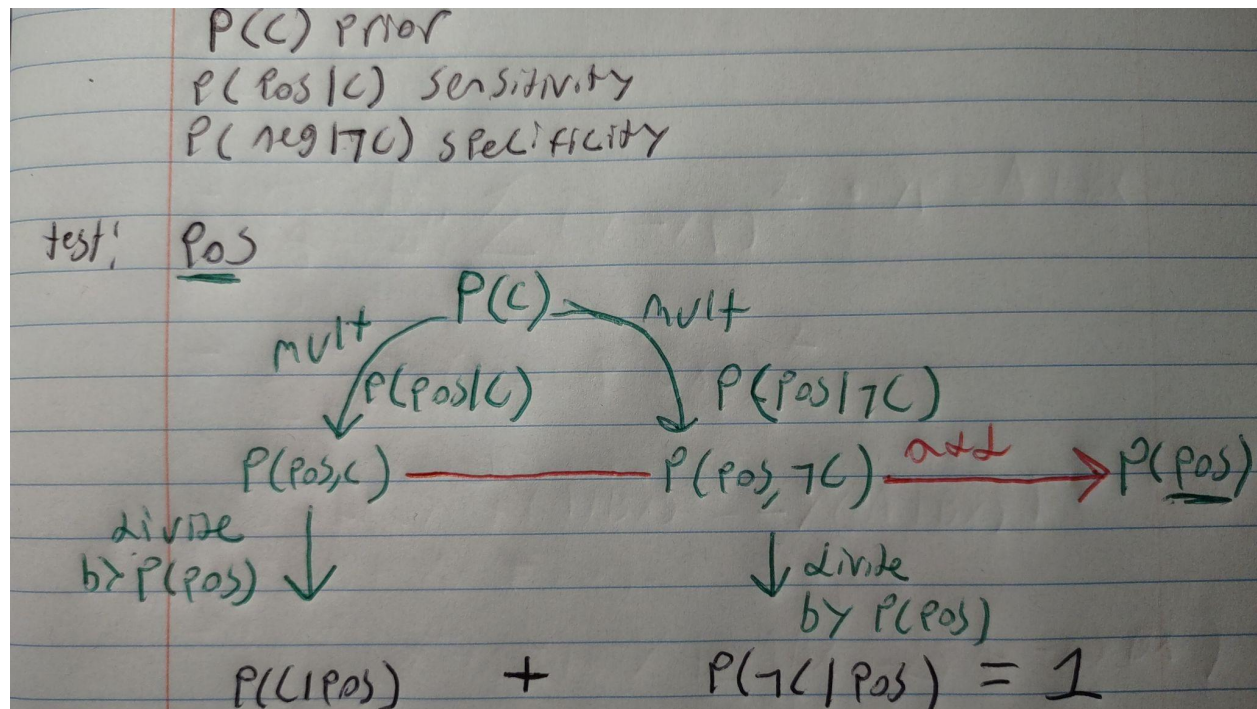 P(C) prior
P(Pos|C) sensitivity
P(neg|¬C) specificity
test: Pos
P(C)
mult mult
P(Pos|C) P(Pos|¬C)
P(Pos,C) P(Pos,¬C) add P(Pos)
divide
by P(Pos)
divide
by P(Pos)
P(C|Pos) + P(¬C|Pos) = 1